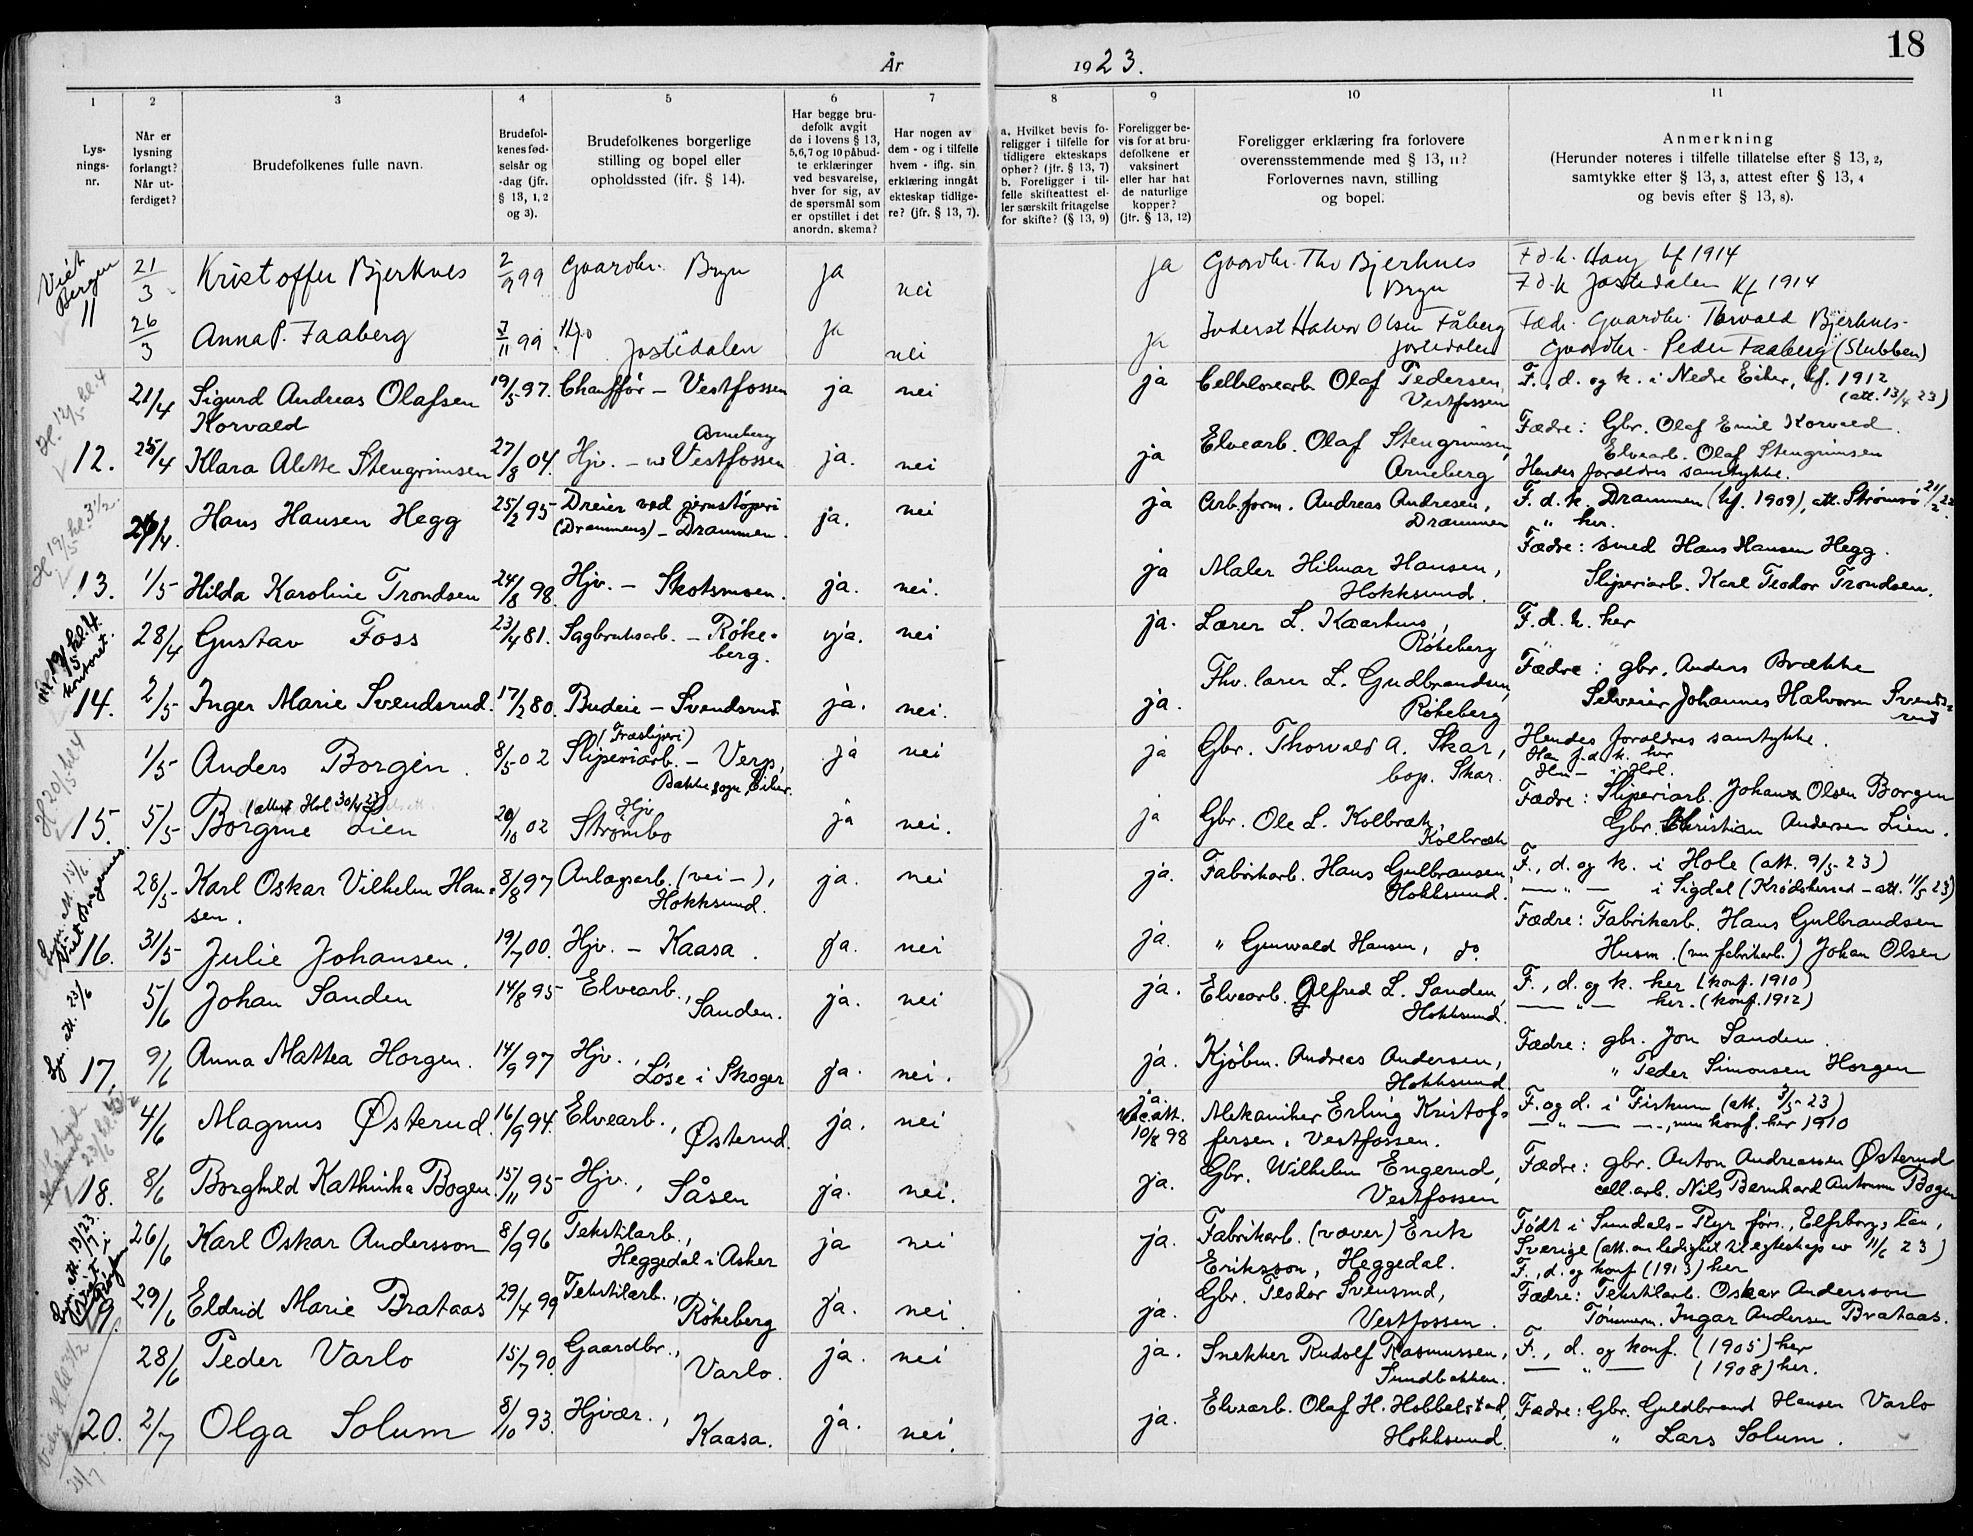 År 1923.
18
1 2 3 4 5 6 7 8 9 10 11
Lys-
nings-
nr.
Når er
lysning
forlangt?
Når ut-
ferdiget?
Brudefolkenes fulle navn.
Brudefol-
kenes fød-
selsår og
-dag (jfr.
§ 13, 1, 2
og 3).
Brudefolkenes borgerlige
stilling og bopel eller
opholdssted (ifr. § 14).
Har begge bru-
defolk avgit
de i lovens § 13,
5,6,7 og 10 påbud-
te erklæringer
ved besvarelse,
hver for sig, av
de spørsmål som
er opstillet i det
anordn. skema?
Har nogen av
dem - og i tilfelle
hvem - iflg. sin
erklæring inngåt
ekteskap tidlige-
re? (jfr. § 13, 7).
a. Hvilket bevis fo-
religger i tilfelle for
tidligere ekteskaps
ophør? (jfr. § 13, 7)
b. Foreligger i til-
felle skifteattest el-
ler særskilt fritagelse
for skifte? (§ 13, 9)
Foreligger be-
vis for at bru-
defolkene er
vaksinert
eller har hat
de naturlige
kopper?
(jfr. § 13, 12)
Foreligger erklæring fra forlovere
overensstemmende med § 13, 11?
Forlovernes navn, stilling
og bopel.
Anmerkning
(Herunder noteres i tilfelle tillatelse efter § 13, 2,
samtykke efter § 13, 3, attest efter § 13, 4
og bevis efter § 13, 8).
Viet
Bergen
11
21/3 Kristoffer Bjerknes 2/9 99 Gaardbr. Bryn ja nei ja Gaardbr. Thv Bjerknes
Bryn
F d. k. Haug kf 1914
F d k Jostedalen Kf 1914
26/3 Anna P. Faaberg 7/11 99 Hj.
Jostedalen ja nei ja Inderst Halvor Olsen Fåberg
Jostedalen
Fædr. Gaardbr. Torvald Bjerknes-
Gaardbr. Peder Faaberg (Stubben)
H. 12/5 kl. 4
21/4 Sigurd Andreas Olafsen
Korvald 19/5 97. Chauffør - Vestfossen ja nei ja Cellulosearb. Olaf Pedersen,
Vestfossen
F., d. og k. i Nedre Eiker, kf. 1912
(att. 13/4 23)
Fædre: Gbr. Olaf Emil Korvald.
12. 25/4 Klara Alette Stengrimsen 27/8 04. Hjv. - Vestfossen
Arneberg ja. nei ja Elvearb. Olaf Stengrimsen,
Arneberg
Elvearb. Olaf Stengrimsen
Hendes forældres samtykke.
H 19/5 kl. 3 1/2.
26/4. Hans Hansen Hegg 25/2 95 Dreier ved jernstøperi
(Drammens) - Drammen. ja. nei ja Arb.form. Andreas Andresen,
Drammen
F. d. k. Drammen (kf. 1909), att. Strømsø 21/2 23
" her.
Fædre: smed Hans Hansen Hegg.
13. 1/5 Hilda Karoline Trondsen 24/8 98. Hjv. - Skotsmoen. ja. nei. ja Maler Hilmar Hansen,
Hokksund.
Sliperiarb. Karl Teodor Trondsen.
19/5 kl. 4
kontoret.
28/4 Gustav Foss 23/4 81. Sagbruksarb. - Røke-
berg. ja. nei ja. Lærer L. Kaarhus,
Røkeberg
F. d. k. her
"
Fædre: gbr. Anders Brække
14. 2/5 Inger Marie Svendsrud. 17/2 80. Budeie - Svendsrud. ja. nei. ja. Fhv. lærer L. Gudbrandsen,
Røkeberg
Selveier Johannes Halvorsen Svends-
rud
H 20/5 kl 4
1/5 Anders Borgen. 8/5 02 Sliperiarb. (Træsliperi) - Verp,
Bakke sogn, Eiker. ja nei ja Gbr. Thorvald A. Skar,
bop. Skar.
Hendes forældres samtykke.
Han f. d. k. her
Hun - i Hol.
Fædre: Sliperiarb. Johans Olsen Borgen
15. 5/5 (attest Hol 30/4 23)
Borgine Lien 20/10 02 Hjv
Strømbo ja nei. ja Gbr. Ole L. Kolbræk,
Kolbræk
Gbr. Christian Andersen Lien.
Lysn. att. 15/6.
Viet Bragernes.
28/5 Karl Oskar Vilhelm Han-
sen. 8/8 97 Anlægsarb. (vei-),
Hokksund. ja. nei ja. Fabrikarb. Hans Gulbransen,
Hokksund.
F., d. og k. i Hole (att. 9/5 23)
— " — i Sigdal (Krødsherred - att. 11/5 23)
Fædre: Fabrikarb. Hans Gulbrandsen
16. 31/5 Julie Johansen. 19/7 00. Hjv. - Kaasa. ja. nei ja. " Gunvald Hansen, do.
Husm. (nu fabrikarb.) Johan Olsen
Lysn. att. 23/6
5/6 Johan Sanden 14/8 95 Elvearb.,
Sanden. ja. nei ja. Elvearb. Alfred L. Sanden,
Hokksund.
F., d. og k. her (konf. 1910)
— " — her. (konf. 1912)
Fædre: gbr. Jon Sanden.
17. 9/6 Anna Mattea Horgen. 14/9 97 Hjv.
Løse i Skoger ja. nei. ja. Kjøbm. Andreas Andersen,
Hokksund
" Peder Simonsen Horgen
23/6
4/6 Magnus Østerud. 16/9 94. Elvearb.,
Østerud. ja. nei ja.
vac.att.
10/8 98 Mekaniker Erling Kristof-
fersen, Vestfossen.
F. og d. i Fiskum (att. 7/5 23)
— " — — -, men konf. her 1910
Fædre: gbr. Anton Andreassen Østerud
18. 8/6 Borghild Kathinka Bogen 15/11 95 Hjv.,
Såsen ja. nei. ja. Gbr. Wilhelm Engerud,
Vestfossen
cell.arb. Nils Bernhard Antonsen Bogen
Lysn. att. 13/7 23.
Viet i
Røyken
26/6 Karl Oskar Andersson 8/9 96 Tekstilarb.,
Heggedal i Asker ja nei ja. Fabrikarb. (væver) Erik
Eriksson, Heggedal.
Født i Sundals-Ryr förs., Elfsborgs län,
Sverige (att. om ledighet til egteskap av 11/6 23)
F., d. og konf (1913) her
19. 29/6 Eldrid Marie Brataas 29/4 99 Tekstilarb.,
Røkeberg ja. nei. ja. Gbr. Teodor Svensrud,
Vestfossen.
Fædre: Tekstilarb. Oskar Andersson
Tømmerm. Ingar Andersen Brataas.
28/6 Peder Varlo 15/7 90. Gaardbr.,
Varlo. ja. nei ja. Snekker Rudolf Rasmussen,
Sundbakken.
F., d. og konf. (1905) her
— " — (1908) her.
20. 2/7 Olga Solum 8/10 93. Hjvær.,
Kaasa. ja. nei. ja. Elvearb. Olaf H. Hobbelstad,
Hokksund.
Fædre: Gbr. Guldbrand Hansen Varlo
" Lars Solum.